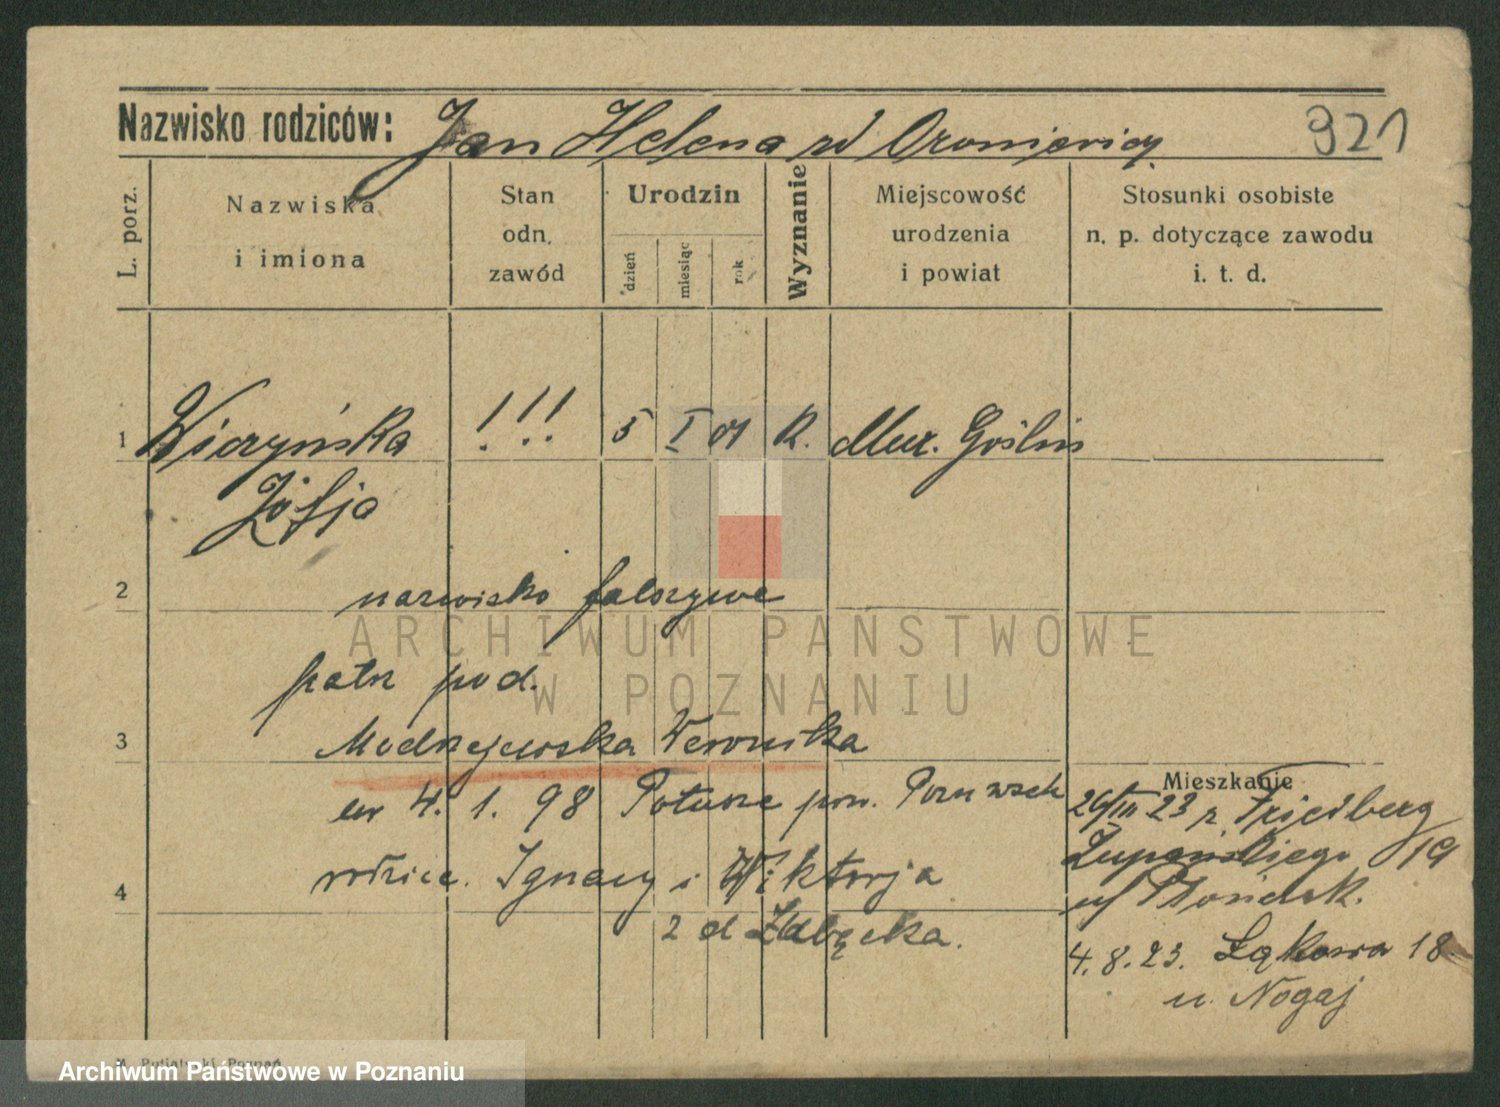 Nazwisko rodziców: Jan Helena zd 921
L. porz.
Nazwiska i imiona
Stan odn. zawód
Urodzin
dzień miesiąc rok
Wyznanie
Miejscowość urodzenia i powiat
Stosunki osobiste n. p. dotyczące zawodu i. t. d.
1 Wiczyńska !!! 5 I 01 K. Mur. Goślin
Zofja
2 nazwisko fałszywe
patrz pod.
3 Modrzejewska Weronika
Mieszkanie
ur 4. 1. 98 pow. Pozn wsch
26/III 23 z Friedberg
rodzice. Ignacy i Wiktorja
Żupańskiego 19
4
z d
u/
4.8.23. Łąkowa 18
u. Nogaj
ARCHIWUM PAŃSTWOWE
W POZNANIU
M. Putiatycki Poznań
Archiwum Państwowe w Poznaniu